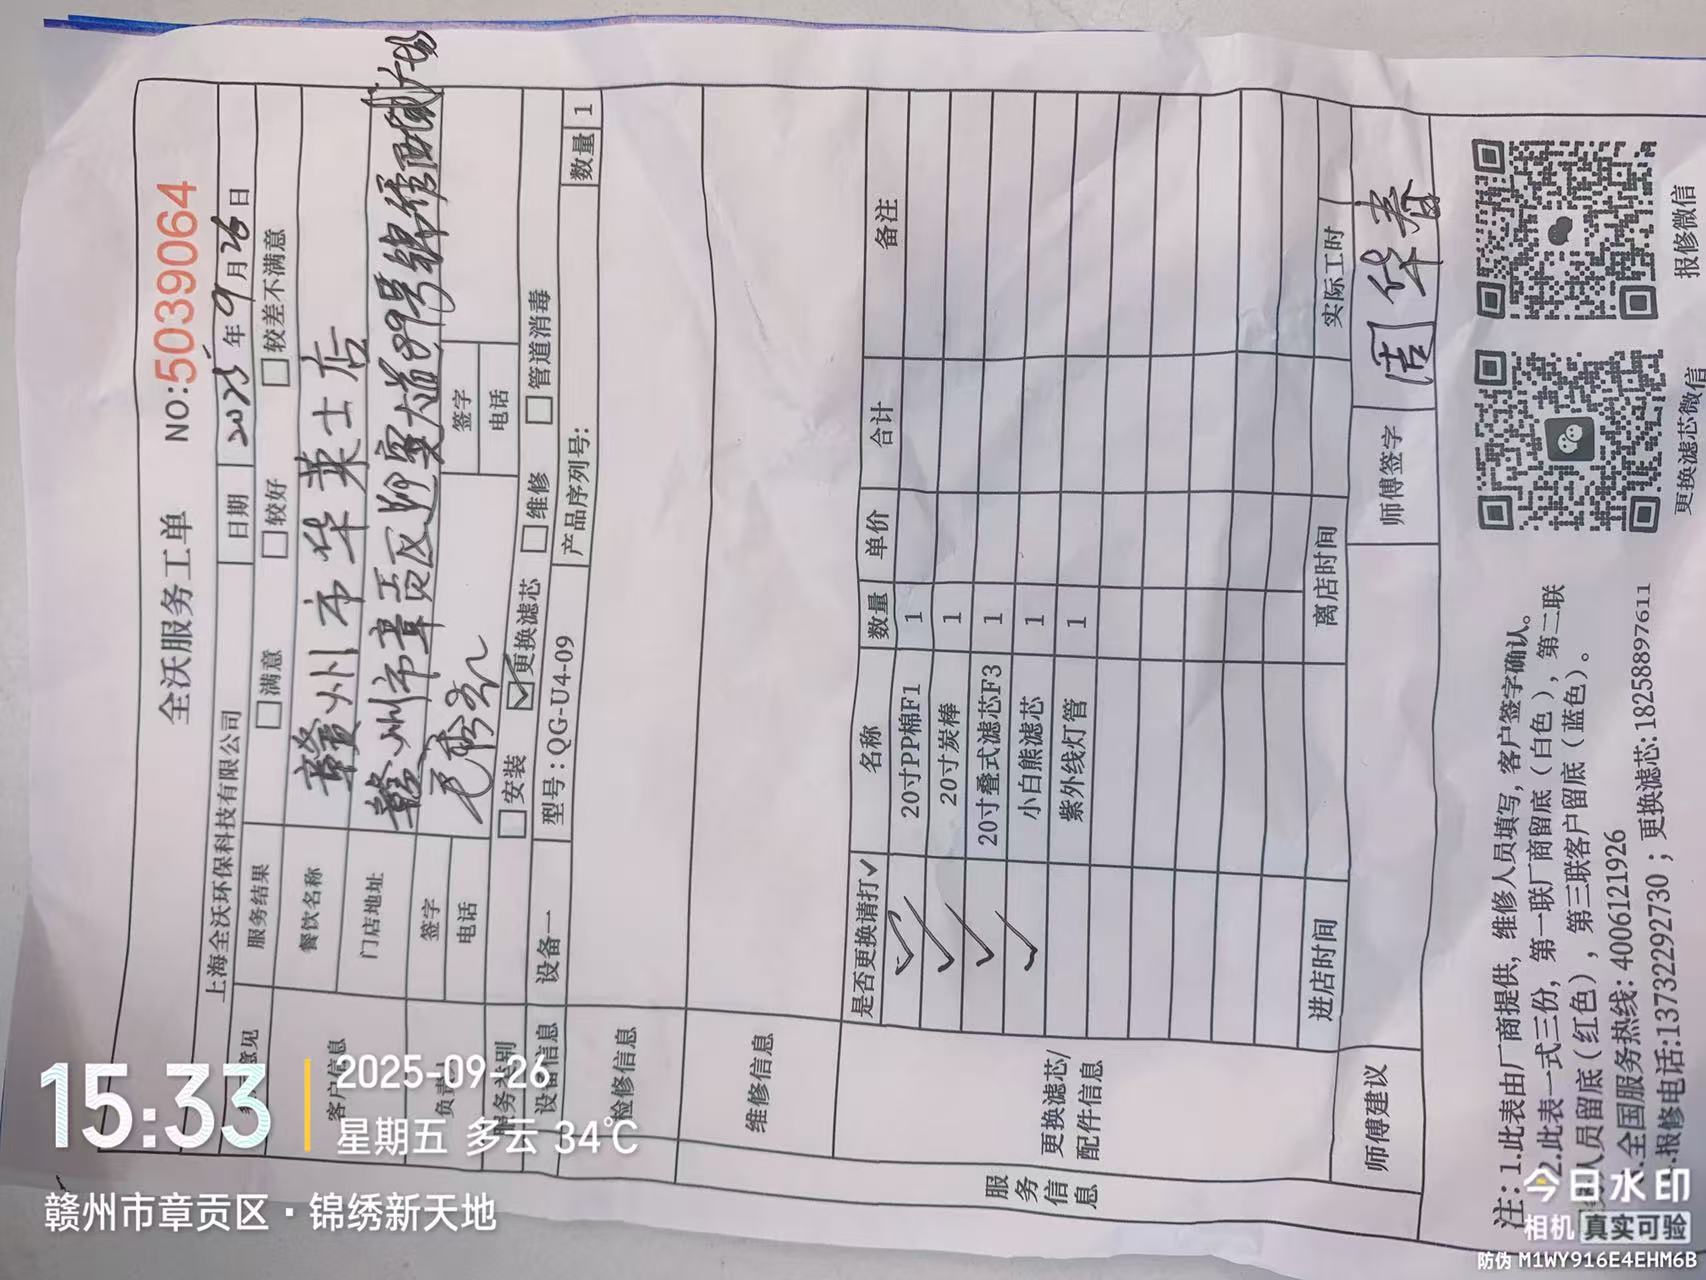 全沃服务工单 NO:5039064
上海全沃环保科技有限公司 日期 2025年9月26日
意见 服务结果 □满意 □较好 □较差不满意
客户信息 餐饮名称 赣州市华莱士店
门店地址 赣州市章贡区迎宾大道89号锦绣
负责 签字 签字
电话 电话
服务类别 □安装 ☑更换滤芯 □维修 □管道消毒
设备信息 设备一 型号:QG-U4-09 产品序列号: 数量 1
检修信息
维修信息
服务信息
更换滤芯/配件信息
是否更换请打✓ 名称 数量 单价 合计 备注
✓ 20寸PP棉F1 1
✓ 20寸炭棒 1
✓ 20寸叠式滤芯F3 1
✓ 小白熊滤芯 1
紫外线灯管 1
进店时间 离店时间 实际工时
师傅建议 师傅签字 周华春
注：1.此表由厂商提供，维修人员填写，客户签字确认。
2.此表一式三份，第一联厂商留底（白色），第二联
人员留底（红色），第三联客户留底（蓝色）。
.全国服务热线：4006121926
.报修电话:13732292730；更换滤芯:18258897611
更换滤芯微信 报修微信
15:33
2025-09-26
星期五 多云 34℃
赣州市章贡区·锦绣新天地
今日水印
相机 真实可验
防伪 M1WY916E4EHM6B